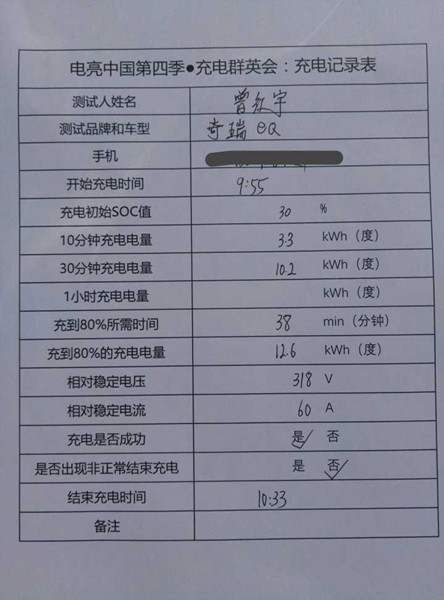 电亮中国第四季●充电群英会：充电记录表
测试人姓名 曾红宇
测试品牌和车型 奇瑞 eQ
手机
开始充电时间 9:55
充电初始SOC值 30 %
10分钟充电电量 3.3 kWh（度）
30分钟充电电量 10.2 kWh（度）
1小时充电电量 kWh（度）
充到80%所需时间 38 min（分钟）
充到80%的充电电量 12.6 kWh（度）
相对稳定电压 318 V
相对稳定电流 60 A
充电是否成功 是 否
是否出现非正常结束充电 是 否
结束充电时间 10:33
备注